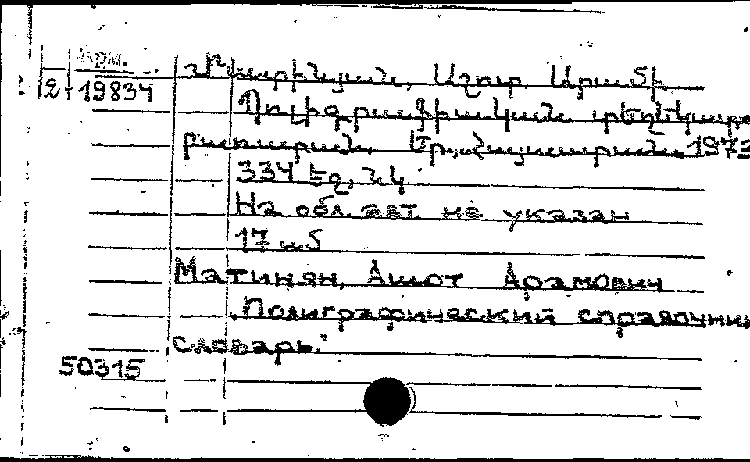 Арм.
2-19834
Մատինյան, Աշոտ Արամի
Պոլիգրաֆիական տեղեկատու
բառարան. Եր., Հայաստան. 1973
334 էջ, նկ.
На обл. авт. не указан
17 և 5
Матинян, Ашот Арамович
"Полиграфический справочник
словарь."
50315